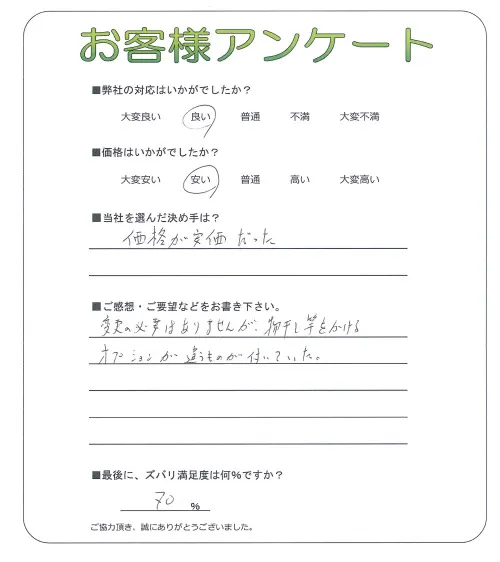 お客様アンケート
■弊社の対応はいかがでしたか？
大変良い 良い 普通 不満 大変不満
■価格はいかがでしたか？
大変安い 安い 普通 高い 大変高い
■当社を選んだ決め手は？
価格が安価だった
■ご感想・ご要望などをお書き下さい。
変更の必要はありませんが、物干し竿をかける
オプションが違うものが付いていた。
■最後に、ズバリ満足度は何％ですか？
70 ％
ご協力頂き、誠にありがとうございました。